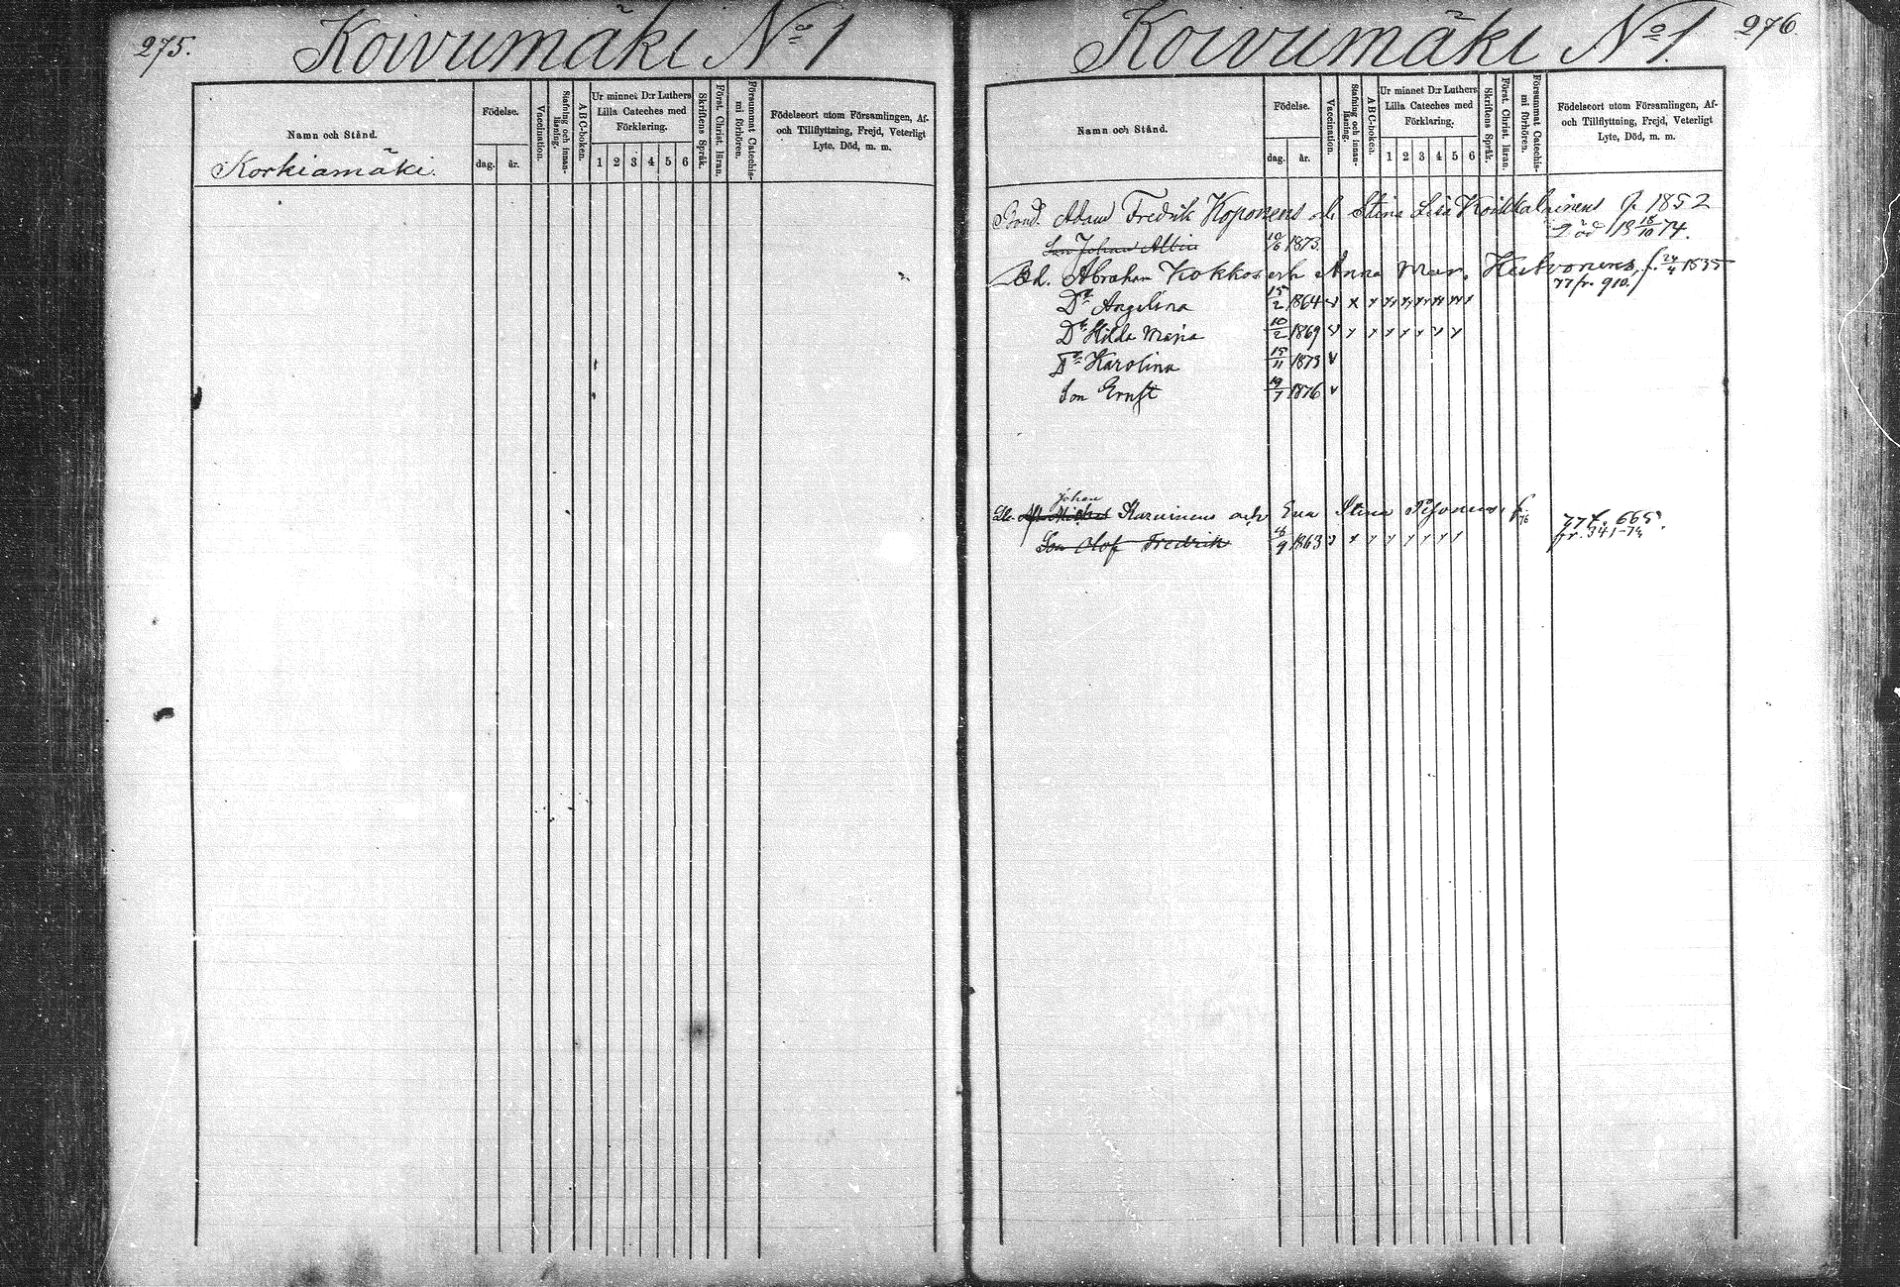 275.
Koivumäki No 1
Namn och Stånd.
Födelse.
dag.
år.
Vaccination.
Stafning och innan-
läsning.
ABC-boken.
Ur minnet D:r Luthers
Lilla Cateches med
Förklaring.
1 2 3 4 5 6
Skriftens Språk.
Först. Christ. läran.
Försummat Catechis-
mi förhören.
Födelseort utom Församlingen, Af-
och Tillflyttning, Frejd, Veterligt
Lyte, Död, m. m.
Korkiamäki.
Koivumäki No 1.
276.
Namn och Stånd.
Födelse.
dag.
år.
Vaccination.
Stafning och innan-
läsning.
ABC-boken.
Ur minnet D:r Luthers
Lilla Cateches med
Förklaring.
1 2 3 4 5 6
Skriftens Språk.
Först. Christ. läran.
Försummat Catechis-
mi förhören.
Födelseort utom Församlingen, Af-
och Tillflyttning, Frejd, Veterligt
Lyte, Död, m. m.
Bond. Adam Fredrik Koponens och Stina Lisa Koikkalainens f. 1852
Son Johan Albin 10/6 1873. Död 18 18/10 74.
Abraham Kokkos och Anna Mar. f. 24/4 1835
77 fr. 910.
Dr Angelina 15/2 1864
Dr Hilda Maria 10/2 1869
Dr Karolina 15/11 1873 v
Son Ernst 19/7 1876 v
Johan
Karvinens och Eva Stina 77 t. 665.
Son Olof Fredrik 1863 fr. 341-74